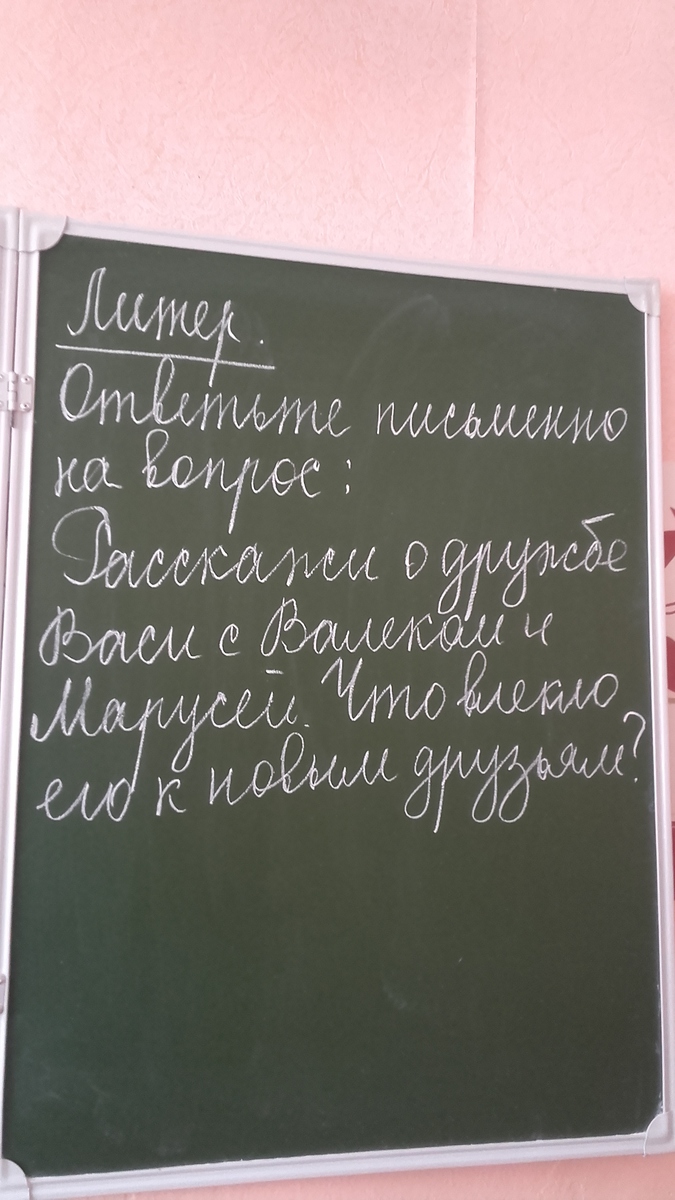 Литер.
Ответьте письменно
на вопрос:
Расскажи о дружбе
Васи с Валеком и
Марусей. Что влекло
его к новым друзьям?